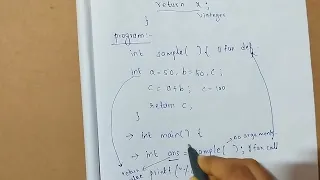 return x;
integer
}
program:-
int sample( ) { // for def
int a=50, b=50, c;
c=a+b; c=100
return c;
→ int main() {
no arguments
→ int ans = sample( ); // for call
return
printf("%